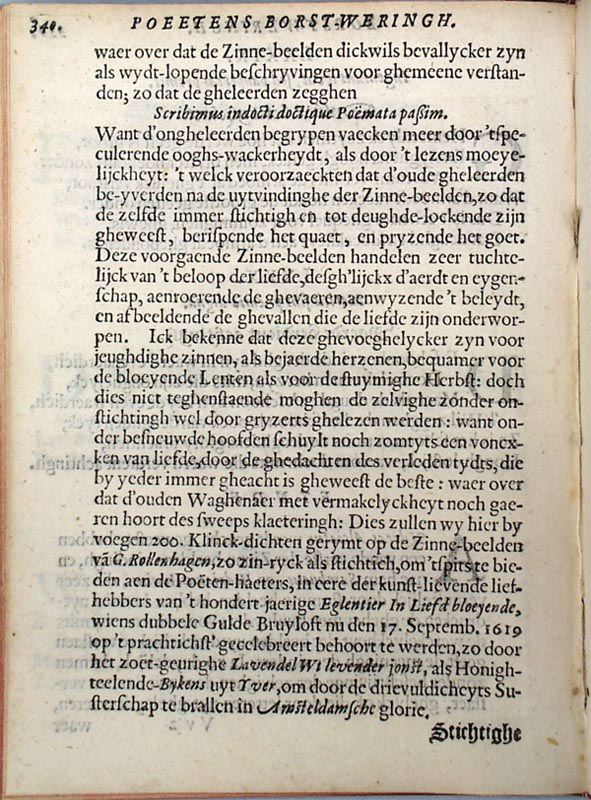 340. POEETENS BORST-WERINGH.
waer over dat de Zinne-beelden dickwils bevallycker zyn
als wydt-lopende beschryvingen voor ghemeene verstan-
den; zo dat de gheleerden zegghen
Scribimus indocti doctique Poëmata passim.
Want d'ongheleerden begrypen vaecken meer door 'tspe-
culerende ooghs-wackerheydt, als door 't lezens moeye-
lijckheyt: 't welck veroorzaeckten dat d'oude gheleerden
be-yverden na de uytvindinghe der Zinne-beelden, zo dat
de zelfde immer stichtigh en tot deughde-lockende zijn
gheweest, berispende het quaet, en pryzende het goet.
Deze voorgaende Zinne-beelden handelen zeer tuchte-
lijck van 't beloop der liefde, desgh'lijckx d'aerdt en eygen-
schap, aenroerende de ghevaeren, aenwyzende 't beleydt,
en af beeldende de ghevallen die de liefde zijn onderwor-
pen. Ick bekenne dat deze ghevoeghelycker zyn voor
jeughdighe zinnen, als bejaerde herzenen, bequamer voor
de bloeyende Lenten als voor de stuymighe Herbst: doch
dies niet teghenstaende moghen de zelvighe zonder on-
stichtingh wel door gryzerts ghelezen werden: want on-
der besneuwde hoofden schuylt noch zomtyts een vonex-
ken van liefde, door de ghedachten des verleden tydts, die
by yeder immer gheacht is gheweest de beste: waer over
dat d'ouden Waghenaer met vermakelyckheyt noch gae-
ren hoort des sweeps klaeteringh: Dies zullen wy hier by
voegen 200. Klinck-dichten gerymt op de Zinne-beelden
vā G. Rollenhagen, zo zin-ryck als stichtich, om 'tspits te bie-
den aen de Poëten-haeters, in eere der kunst-lievende lief-
hebbers van 't hondert-jaerige Eglentier In Liefd bloeyende,
wiens dubbele Gulde Bruyloft nu den 17. Septemb. 1619
op 't prachtichst' gecelebreert behoort te werden, zo door
het zoet-geurighe Lavendel Wt levender jonst, als Honigh-
teelende-Bykens uyt Yver, om door de drievuldicheyts Su-
sterschap te brallen in Amsteldamsche glorie.
Stichtighe